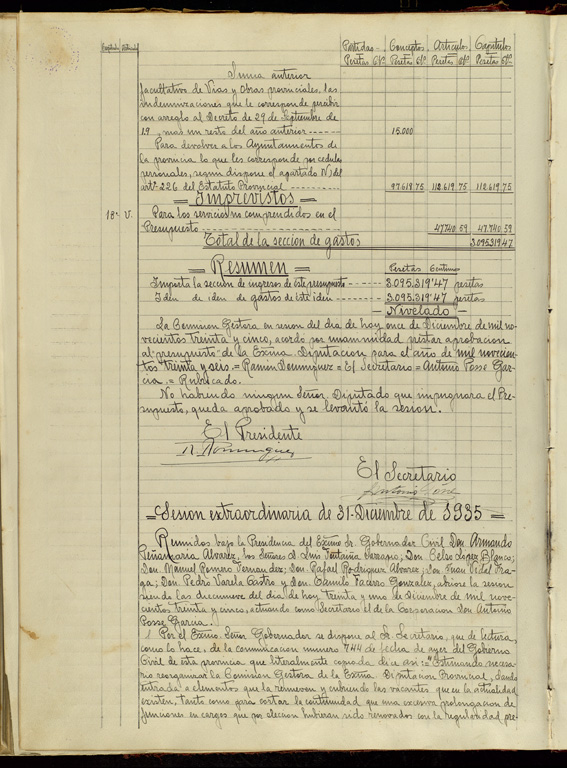 Capítulo Artículo
Partidas- Conceptos Artículos Capítulos
Pesetas Cts. Pesetas Cts. Pesetas Cts. Pesetas Cts.
Suma anterior
facultativo de Vias y Obras provinciales, las
indemnizaciones que le corresponde percibir
con arreglo al Decreto de 29 de Septiembre de
19 , mas un resto del año anterior ------- 15.000
Para devolver a los Ayuntamientos de
la provincia lo que les corresponde por cedulas
personales, segun dispone el apartado N) del
artº 226 del Estatuto Provincial -------- 97.619.75 112.619.75 112.619.75
= Imprevistos =
18º U. Para los servicios no comprendidos en el
Presupuesto ------- 47.740.59 47.740.59
Total de la seccion de gastos 3.095.319.47
= Resumen = Pesetas Centimos
Importa la sección de ingresos de este presupuesto ---- 3.095.319'47 pesetas
Iden de iden de gastos de este iden ---- 3.095.319'47 pesetas
- Nivelado -
La Comision Gestora en sesion del dia de hoy once de Diciembre de mil no-
vecientos treinta y cinco, acordó por unanimidad prestar aprobacion
al presupuesto de la Excma. Diputacion para el año de mil novecien-
tos treinta y seis = Ramón Dominguez = El Secretario = Antonio Posse Gar-
cia = Rubricado.
No habiendo ningun Señor Diputado que impugnara el Pre-
supuesto, queda aprobado y se levantó la sesion.
El Presidente
R. Dominguez
El Secretario
Antonio Posse
= Sesion extraordinaria de 31-Diciembre de 1935 =
Reunidos bajo la Presidencia del Excmo Sr. Gobernador Civil Don Armando
Peñamaria Alvarez, los Señores D. Luis Fontaiña Sarrapio; Don Celso Lopez Blanco;
Don Manuel Romero Fernandez; Don Rafael Rodriguez Alvarez; Don Juan Vidal Fra-
ga; Don Pedro Varela Castro y Don Camilo Gonzalez, abrióse la sesion
siendo las diecinueve del dia de hoy treinta y uno de Diciembre de mil nove-
cientos treinta y cinco, actuando como Secretario el de la Corporacion Don Antonio
Posse Garcia.
Por el Excmo. Señor Gobernador se dispone al Sr. Secretario, que de lectura,
como lo hace, de la comunicacion numero 744 de fecha de ayer del Gobierno
Civil de esta provincia que literalmente copiada dice asi := Estimando necesa-
rio reorganizar la Comision Gestora de la Excma. Diputacion Provincial, dando
entrada a elementos que la renueven y cubriendo las vacantes que en la actualidad
existen, tanto como para cortar la continuidad que una excesiva prolongacion de
funciones en cargos que por eleccion hubieran sido renovados con la regularidad pre-